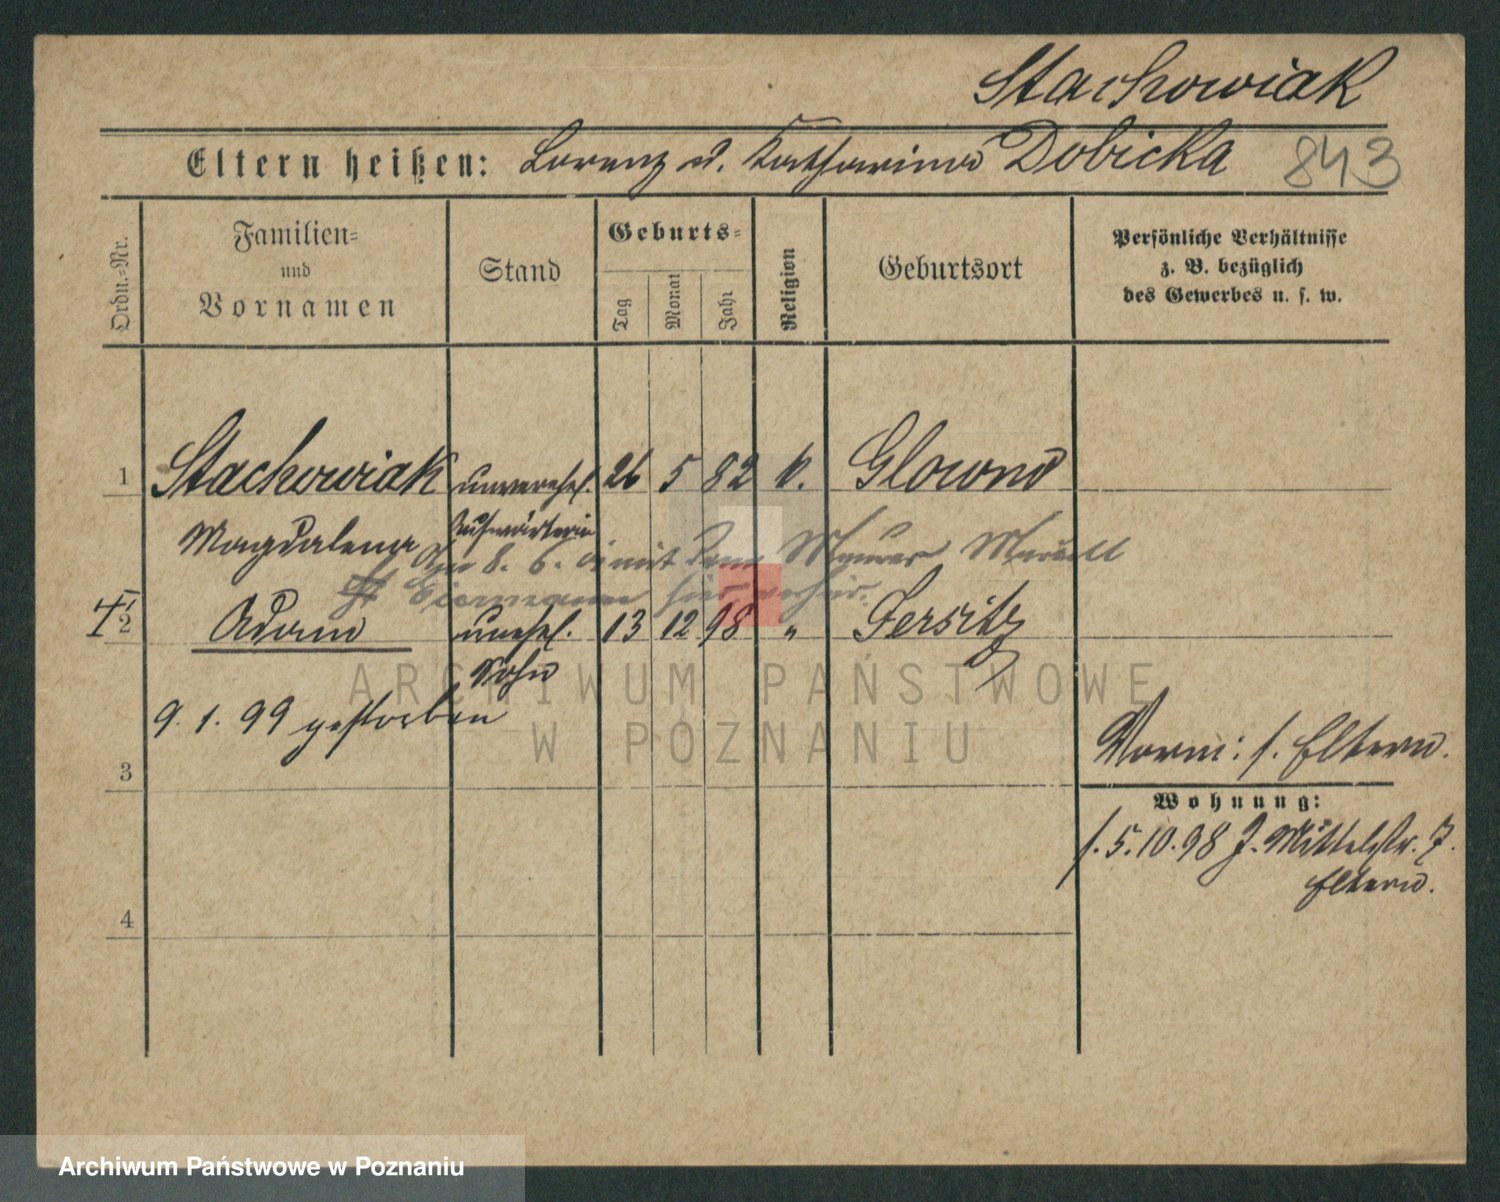 Stachowiak
Eltern heißen: Lorenz u. Katharina Dobicka 843
Ordn.-Nr.
Familien-
und
Vornamen
Stand
Geburts-
Tag
Monat
Jahr
Religion
Geburtsort
Persönliche Verhältnisse
z. B. bezüglich
des Gewerbes u. s. w.
1 Stachowiak unverehel. 26 5 82 k. Glowno
Magdalena Aufwärterin
8. 6. mit dem Maurer
hier verheir.
† 2 Adam unehel. 13 12 98 " Jersitz
Sohn
9. 1. 99 gestorben
Vorm: s. Eltern.
3
Wohnung:
s. 5.10.98 J. Mittelstr. 7.
Eltern.
4
ARCHIWUM PAŃSTWOWE
W POZNANIU
Archiwum Państwowe w Poznaniu